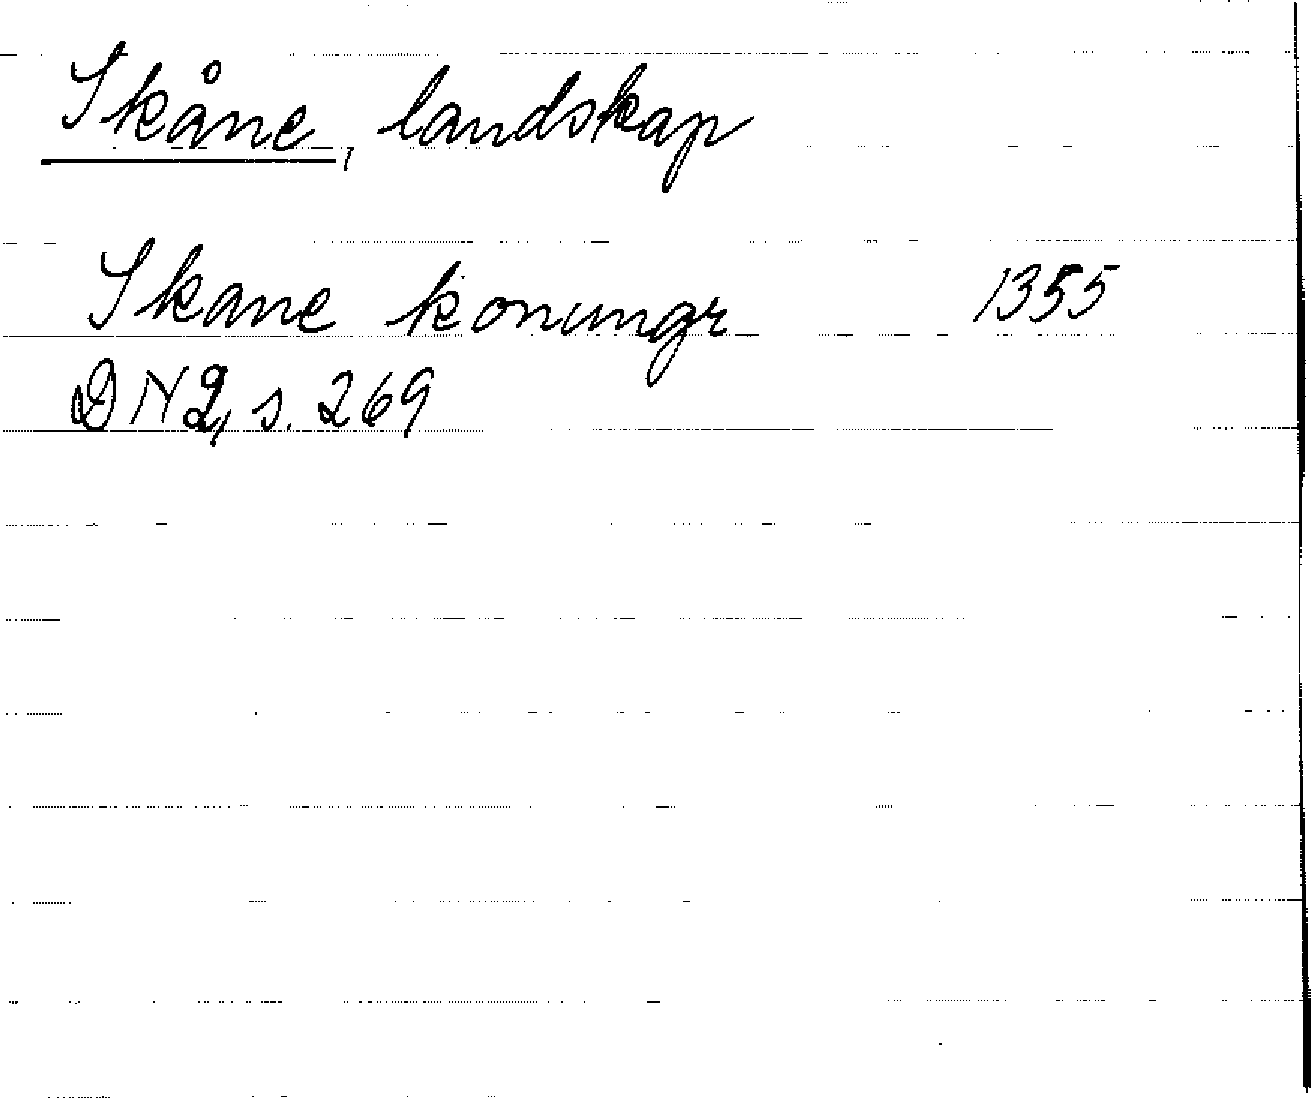 Skåne, landskap
Skane konungr 1355
DN 2, s. 269